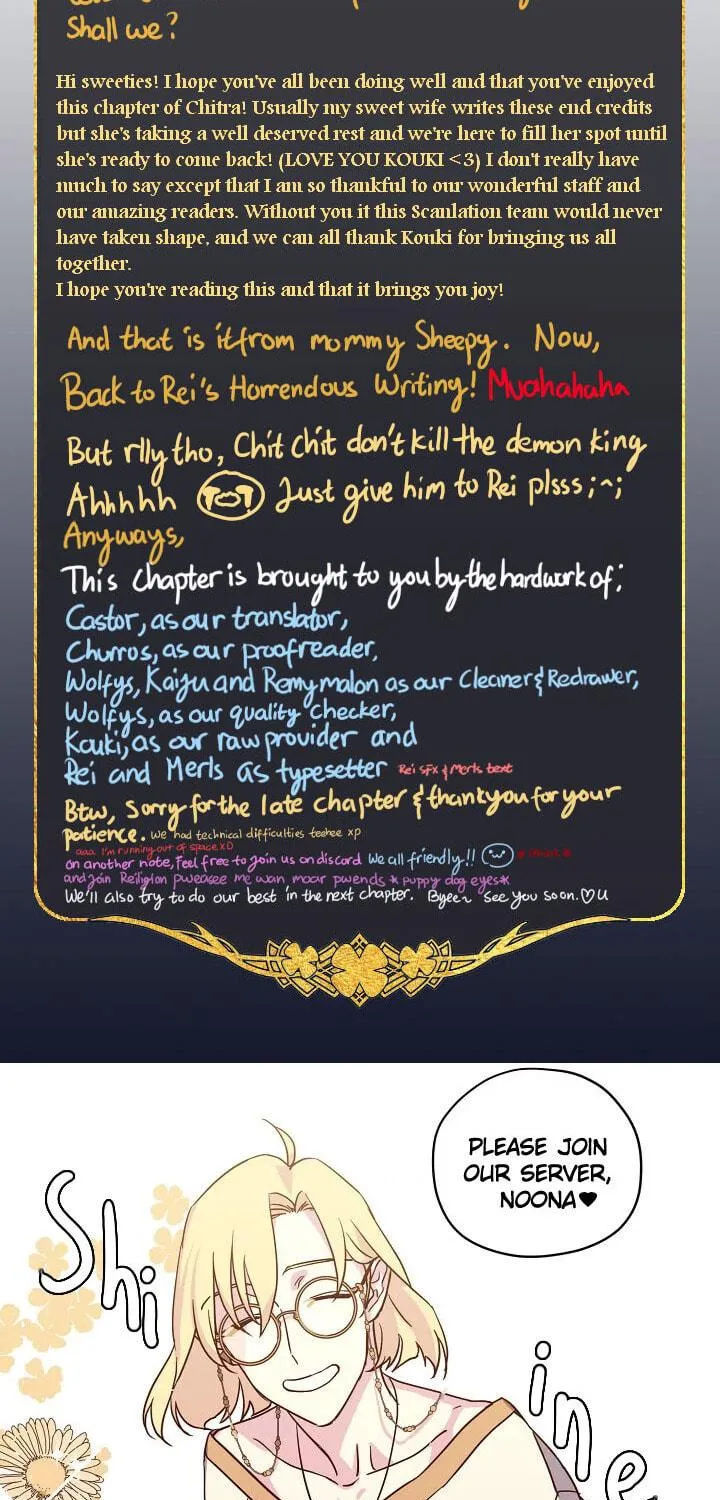 Shall we?
Hi sweeties! I hope you've all been doing well and that you've enjoyed
this chapter of Chitra! Usually my sweet wife writes these end credits
but she's taking a well deserved rest and we're here to fill her spot until
she's ready to come back! (LOVE YOU KOUKI <3) I don't really have
much to say except that I am so thankful to our wonderful staff and
our amazing readers. Without you it this Scanlation team would never
have taken shape, and we can all thank Kouki for bringing us all
together.
I hope you're reading this and that it brings you joy!
And that is it from mommy Sheepy. Now,
Back to Rei's Horrendous Writing! Muahahaha
But rlly tho, Chit chit don't kill the demon king
Ahhhhh Just give him to Rei plsss ;^;
Anyways,
This chapter is brought to you by the hardwork of;
Castor, as our translator,
Churros, as our proofreader,
Wolfys, Kaigu and Remymalon as our Cleaner & Redrawer,
Wolfys, as our quality checker,
Kouki, as our raw provider and
Rei and Merls as typesetter Rei SFX & Merls text
Btw, Sorry for the late chapter & thankyou for your
patience. we had technical difficulties teehee xp
aaa I'm running out of space XD
on another note, feel free to join us on discord We all friendly!!
and join Reiligion pweasee me wan moar pwends * puppy dog eyes*
We'll also try to do our best in the next chapter. Byee~ See you soon.♡u
PLEASE JOIN
OUR SERVER,
NOONA♥
Shi
ine